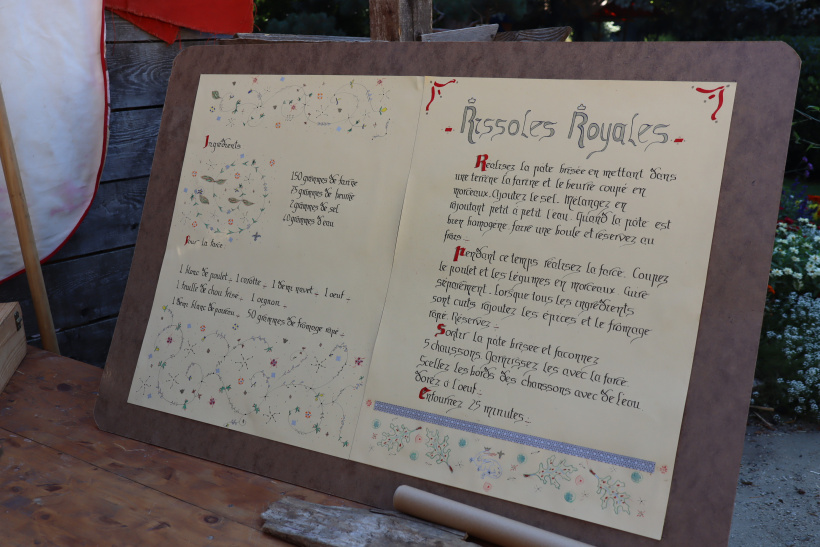 Ingrédients
150 grammes de farine
75 grammes de beurre
2 grammes de sel
40 grammes d'eau
Pour la farce
1 blanc de poulet _ 1 carotte _ 1 demi navet _ 1 oeuf _
1 feuille de chou frisé _ 1 oignon _
1 demi blanc de poireau _ 50 grammes de fromage rapé _
Rissoles Royales
Realisez la pate brisée en mettant dans
une terrine la farine et le beurre coupé en
morceaux. Ajoutez le sel. Mélangez en
rajoutant petit à petit l'eau. Quand la pate est
bien homogene faire une boule et réservez au
frais _
Pendant ce temps réalisez la farce. Coupez
le poulet et les légumes en morceaux. Cuire
séparément _ Lorsque tous les ingrédients
sont cuits rajoutez les épices et le fromage
rapé. Réservez _
Sortir la pate brisée et façonnez
5 chaussons. Garnissez les avec la farce
Scellez les bords des chaussons avec de l'eau
Dorez à l'oeuf _
Enfournez 25 minutes _